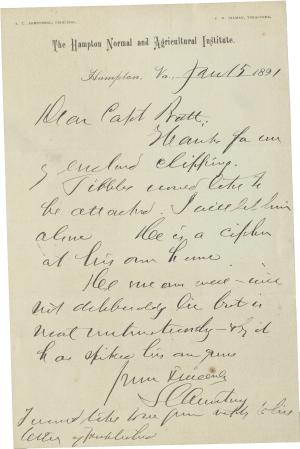 S. C. ARMSTRONG, PRINCIPAL.
F. N. GILMAN, TREASURER.
The Hampton Normal and Agricultural Institute.
Hampton, Va., Jan 15 1891
Dear Capt Pratt:
Thanks for
enclosed clipping.
Tibbles would like to
be attacked. I will let him
alone He is a cipher
at his own home.
He means well — will
not deliberately lie but is
most untrustworthy — & it
has spiked his own guns
Yours Sincerely
S C Armstrong
I would like to see your reply to his
letter if published